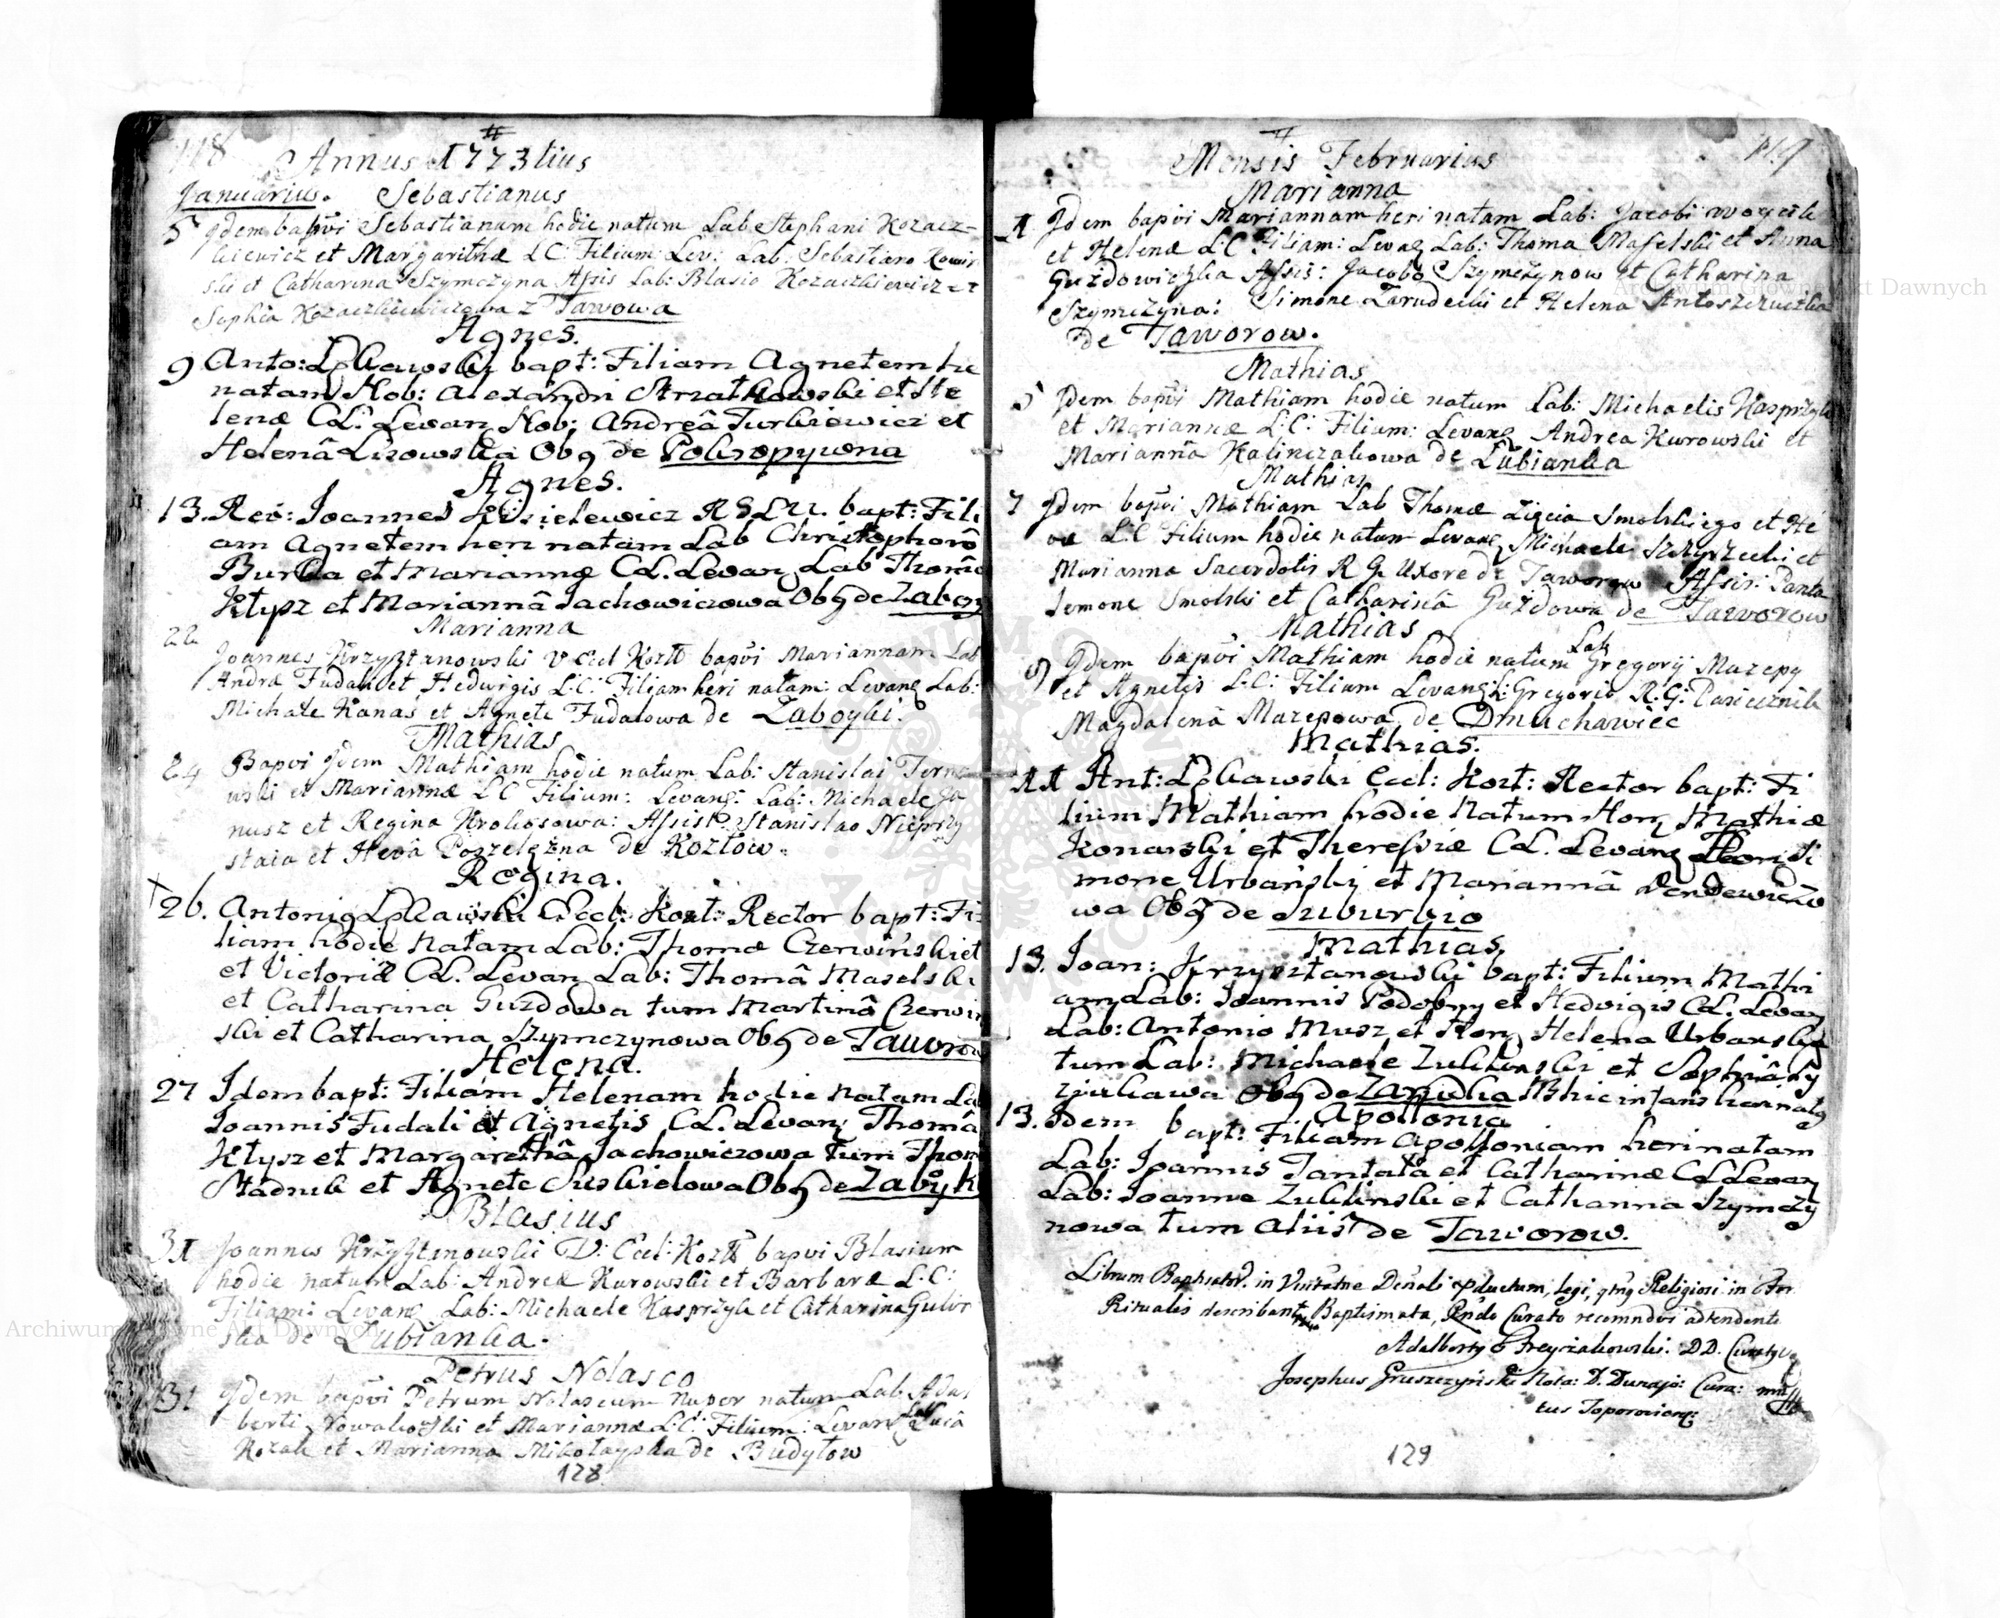 118
Annus 1773tius
Januarius. Sebastianus
5 Jdem bapvi Sebastianum hodie natum Lab Stephani Kozacz-
kiewicz et Margarithæ LC: Filium: Lev: Lab: Sebastiano
ski et Catharina Szymczyna Assis Lab: Blasio Kozaczkiewicz et
Sophia Kozaczkiewiczowa z Jawowa
Agnes.
9 Anto: bapt: Filiam Agnetem he
natam Nob: Alexandri Strzatkowski et He
lenæ CL: Levan Nob: Andreâ Turkiewicz et
Helenâ Lisowska Obq de Pokropywna
Agnes.
13. Rev: Joannes Kisielewicz bapt: Fili
am Agnetem heri natam Lab Christophorô
Burda et Mariannæ CL. Levan Lab Thomâ
Kłysz et Mariannâ Jachowiczowa Obq de
Marianna
22 Joannes Krzysztanowski V Ecl Kozł bapvi Mariannam Lab
Andræ Fudali et Hedwigis L:C: Filiam heri natam: Levang Lab:
Michale Kanas et Agnete Fudalowa de Zaboyki.
Mathias
24 Bapvi Jdem Mathiam hodie natum Lab: Stanislai
wski et Mariannæ LC Filium: Levang: Lab: Michaele Ja
nusz et Regina Krokosowa: Assist: Stanislao
staia et Hevâ de Kozłow.
Regina.
26. Antonig Eccl: Kozt: Rector bapt: Fi
liam hodie natam Lab: Thomæ Czerwinski et
et Victoriæ CL. Levan Lab: Thomâ Maselski
et Catharina Guzdowa tum Martinô Czerwin
ski et Catharina Szymczynowa Obq de Tauorow
Helena.
27 Idem bapt: Filiam Helenam hodie natam Lab
Joannis Fudali et Agnetis CL. Levan Thomâ
Kłysz et Margarethâ Jachowiczowa tum Thom
Stadnik et Agnete Suskielowa Obq de Zaboyki
Blasius
31 Joannes Krzysztanowski V: Eccl: Kozłł bapvi Blasium
hodie natum Lab: Andreæ Kurowski et Barbaræ L:C:
Filiam: Levang Lab: Michaele Kasprzyk et Catharina
ska de Łubianka.
Petrus Nolasco
31 Jdem bapvi Petrum Nolascum nuper natum Lab Adal
berti Nowakowski et Mariannæ L:C: Filium: Levan Lucâ
Kozak et Marianna Mikołayska de Budyłow
128
119
Mensis Februarius
Marianna
1 Jdem bapvi Mariannam heri natam Lab: Jacobi
et Helenæ L:C Filiam: Levag Lab: Thoma Maselski et Anna
Guzdowiczka Assis: Jacobo Szymczynow et Catharina
Szymczyna: Simone Zarudecki et Helena
de Taworow.
Mathias
5 Jdem bapvi Mathiam hodie natum Lab: Michaelis Kasprzyk
et Mariannæ L:C: Filium: Levang Andrea Kurowski et
Mariannâ Kalinczakowa de Łubianka
Mathias
7 Jdem bapvi Mathiam Lab Thomæ Zięcia Smolskiego et He
væ L:C Filium hodie natum Levang Michaele et
Marianna Sacerdotis R G Uxore de Taworow Assis: Panta
lemone Smolski et Catharinâ Guzdowa de Taworow
Mathias
9 Jdem bapvi Mathiam hodie natum Lab Gregorij Mazepy
et Agnetis L:C: Filium Levang: L: Gregorio R.G: Pasiecznik
Magdalenâ Mazepowa de Dmuchawiec
Mathias.
11 Ant: Eccl: Kozt: Rector bapt: Fi
lium Mathiam hodie Natum Hon Mathiæ
Konarski et Theressiæ CL. Levang Hon Si
mone Urbański et Mariannâ
wa Obq de Suburbio
Mathias
13. Joan: Krzysztanowski bapt: Filium Mathi
am Lab: Joannis Podobny et Hedvigis CL. Levan
Lab: Antonio Musz et Hon Helena Urbanska
tum Lab: Michaele Zuklinski et Sophiâ
Obq de Zarudka hic infans natus
Apollonia
13. Idem bapt: Filiam Apolloniam heri natam
Lab: Joannis Tantata et Catharinæ CL Levan
Lab: Joanne Zuklinski et Catharina Szymczy
nowa tum aliis de Taworow.
Librum Baptisator. in Visitatne Denali legi, Religiosi in
Ritualis describant Baptismata, Rndo Curato recomndvi attendenti
Adalbertg DD.
Josephus Gruszczynski Nota: D. Dunajo: Cura:
tus
129